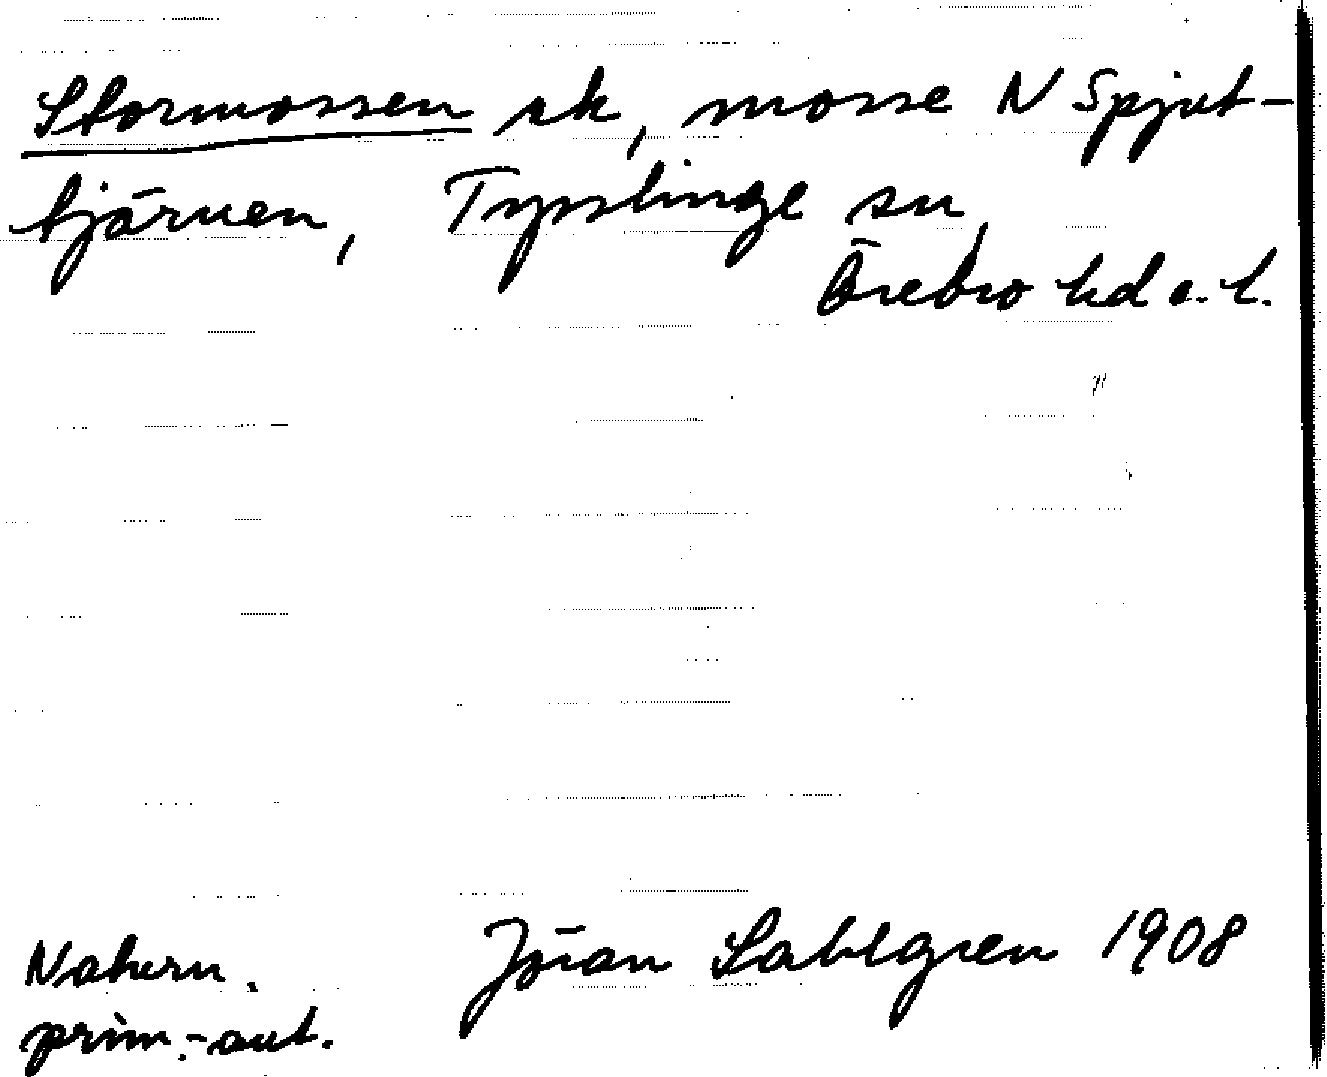 Stormossen sk, mosse N Spjut-
tjärnen, Tysslinge sn,
Örebro hd o. l.
Naturn. Jöran Sahlgren 1908
prim.-ant.